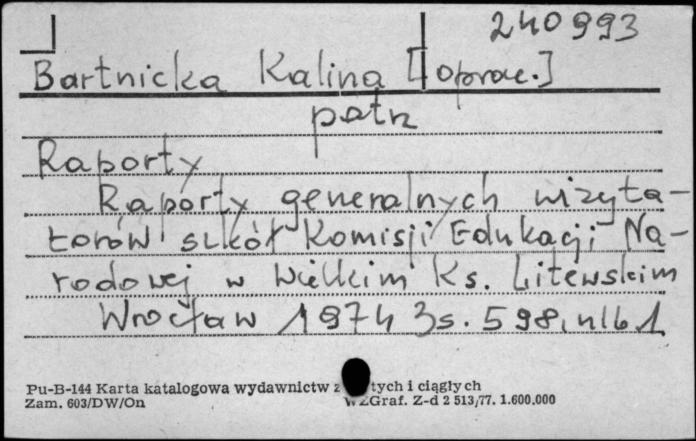 240993
Bartnicka Kalina [oprac.]
patrz
Raporty
Raporty generalnych wizyta-
torów szkół Komisji Edukacji Na-
rodowej w Wielkim Ks. Litewskim
Wrocław 1974 s. 598, nlb 1
Pu-B-144 Karta katalogowa wydawnictw tych i ciągłych
Zam. 603/DW/On WZGraf. Z-d 2 513/77. 1.600.000